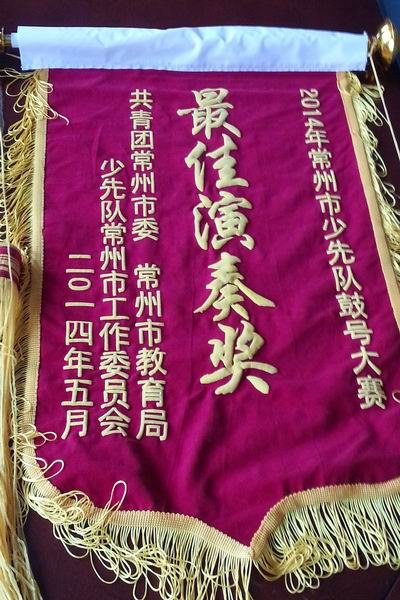 2014年常州市少先队鼓号大赛
最佳演奏奖
共青团常州市委 常州市教育局
少先队常州市工作委员会
二〇一四年五月